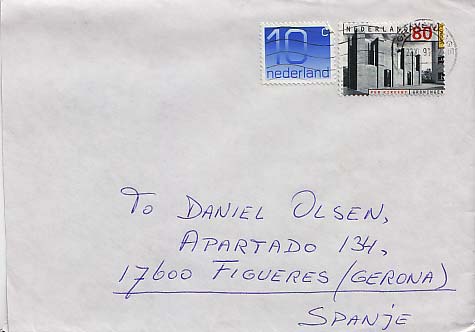 10 c
nederland
NEDERLAND 80
TO DANIEL OLSEN,
APARTADO 134,
17600 FIGUERES (GERONA)
SPANJE